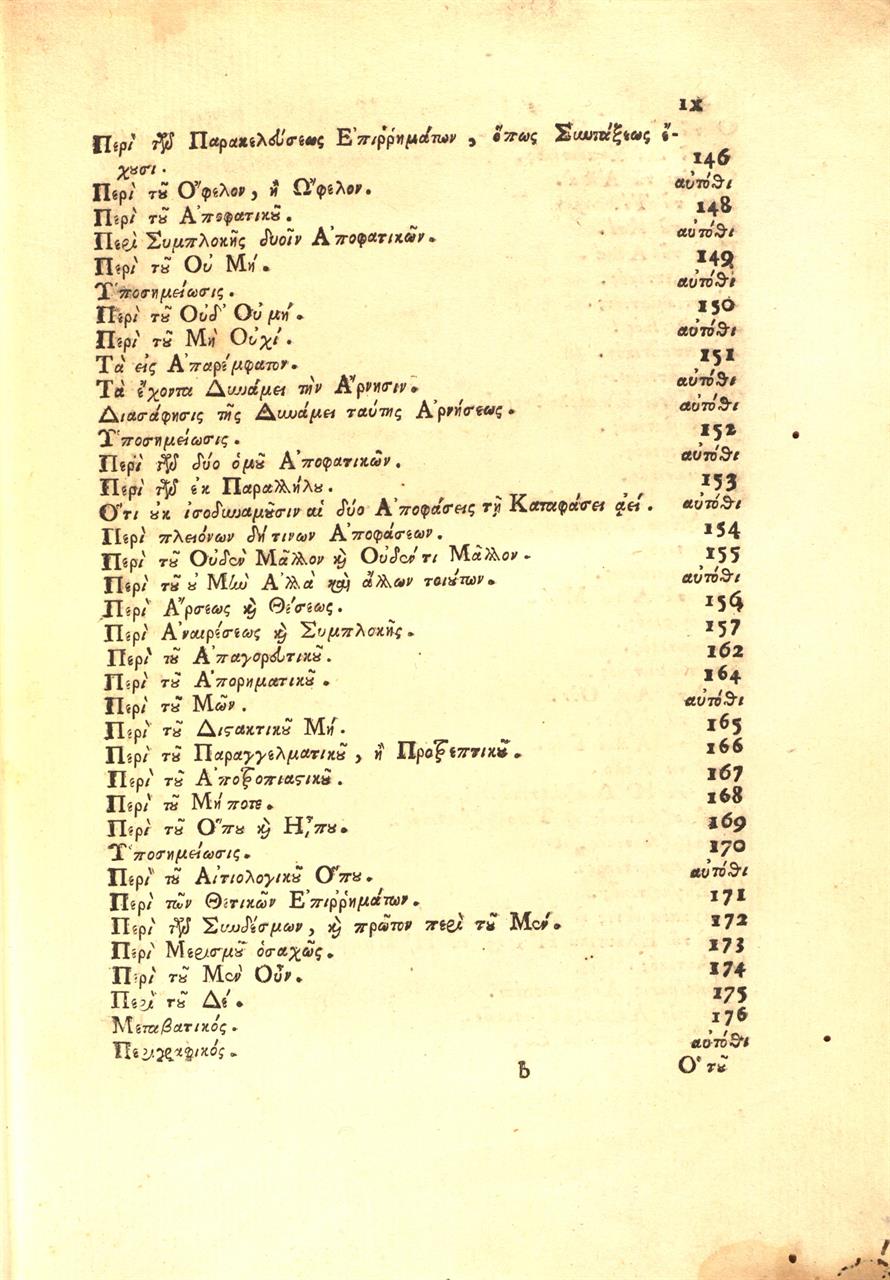 ιx
Περὶ τῶν Παρακελεύσεως Ἐπιῤῥημάτων, ὅπως Συντάξεως ἔ-
χουσι. 146
Περὶ τοῦ Ὄφελον, ἢ Ὤφελον. αὐτόθι
Περὶ τοῦ Ἀποφατικοῦ. 148
Περὶ Συμπλοκῆς δυοῖν Ἀποφατικῶν. αὐτόθι
Περὶ τοῦ Οὐ Μή. 149
Ὑποσημείωσις. αὐτόθι
Περὶ τοῦ Οὐδ' Οὐ μή. 150
Περὶ τοῦ Μὴ Οὐχί. αὐτόθι
Τὰ εἰς Ἀπαρέμφατον. 151
Τὰ ἔχοντα Δυνάμει τὴν Ἄρνησιν. αὐτόθι
Διασάφησις τῆς Δυνάμει ταύτης Ἀρνήσεως. αὐτόθι
Ὑποσημείωσις. 152
Περὶ τῶν δύο ὁμοῦ Ἀποφατικῶν. αὐτόθι
Περὶ τῶν ἐκ Παραλλήλου. 153
Ὅτι οὐκ ἰσοδυναμοῦσιν αἱ δύο Ἀποφάσεις τῇ Καταφάσει ἀεί. αὐτόθι
Περὶ πλειόνων δή τινων Ἀποφάσεων. 154
Περὶ τοῦ Οὐδὲν Μᾶλλον καὶ Οὐδέν τι Μᾶλλον. 155
Περὶ τοῦ οὐ Μὴν Ἀλλὰ καὶ ἄλλων τοιούτων. αὐτόθι
Περὶ Ἄρσεως καὶ Θέσεως. 156
Περὶ Ἀναιρέσεως καὶ Συμπλοκῆς. 157
Περὶ τοῦ Ἀπαγορευτικοῦ. 162
Περὶ τοῦ Ἀπορηματικοῦ. 164
Περὶ τοῦ Μῶν. αὐτόθι
Περὶ τοῦ Διστακτικοῦ Μή. 165
Περὶ τοῦ Παραγγελματικοῦ, ἢ Προτρεπτικοῦ. 166
Περὶ τοῦ Ἀποτροπιαστικοῦ. 167
Περὶ τοῦ Μή ποτε. 168
Περὶ τοῦ Ὅπου καὶ Ἦπου. 169
Ὑποσημείωσις. 170
Περὶ τοῦ Αἰτιολογικοῦ Ὅπου. αὐτόθι
Περὶ τῶν Θετικῶν Ἐπιῤῥημάτων. 171
Περὶ τῶν Συνδέσμων, καὶ πρῶτον περὶ τοῦ Μέν. 172
Περὶ Μερισμοῦ ὁσαχῶς. 173
Περὶ τοῦ Μὲν Οὖν. 174
Περὶ τοῦ Δέ. 175
Μεταβατικός. 176
Περιγραφικός. αὐτόθι
b Ὁ τοῦ